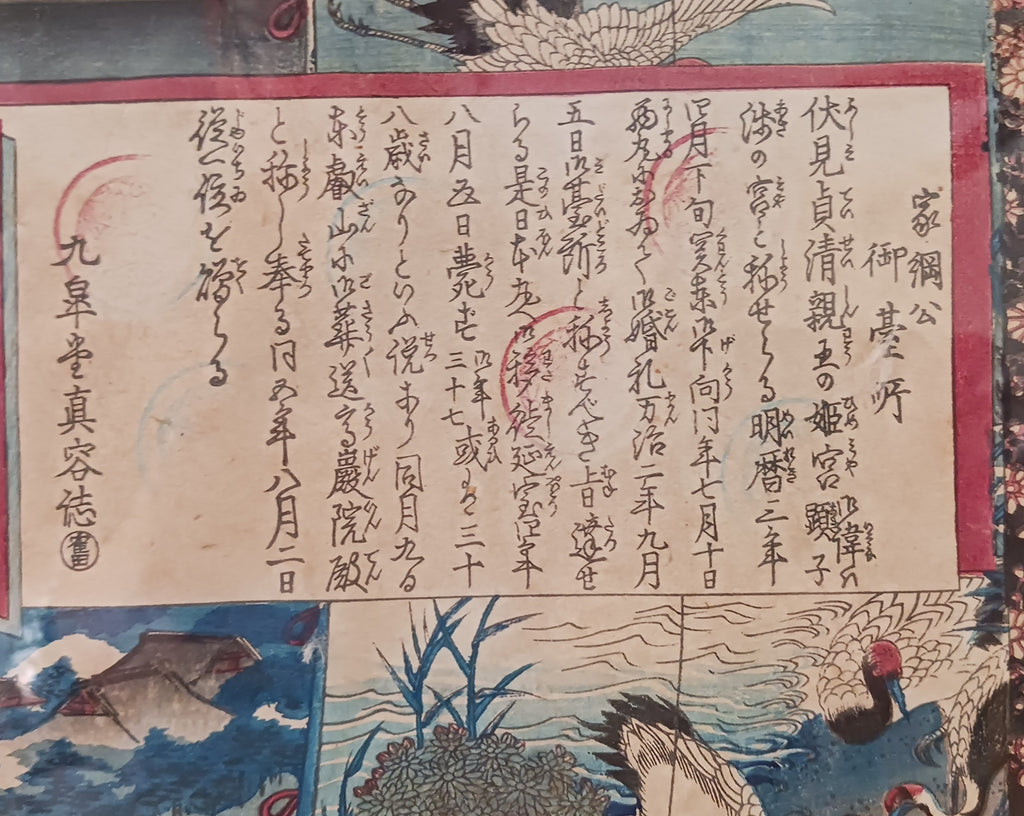 家綱公
御臺所
伏見貞清親王の姫宮御諱は顕子
浅の宮と称せらる明暦三年
四月下旬関東御下向同年七月十日
西丸に於ゐて御婚礼万治二年九月
五日御臺所と称すべき上旨達せ
らる是日本丸へ御移徙延宝四年
八月五日薨ず御年三十七或は三十
八歳なりといふ説あり同月九日
東叡山に御葬送高巖院殿
と称し奉る同五年八月二日
従一位を贈らる
九皐堂真容誌